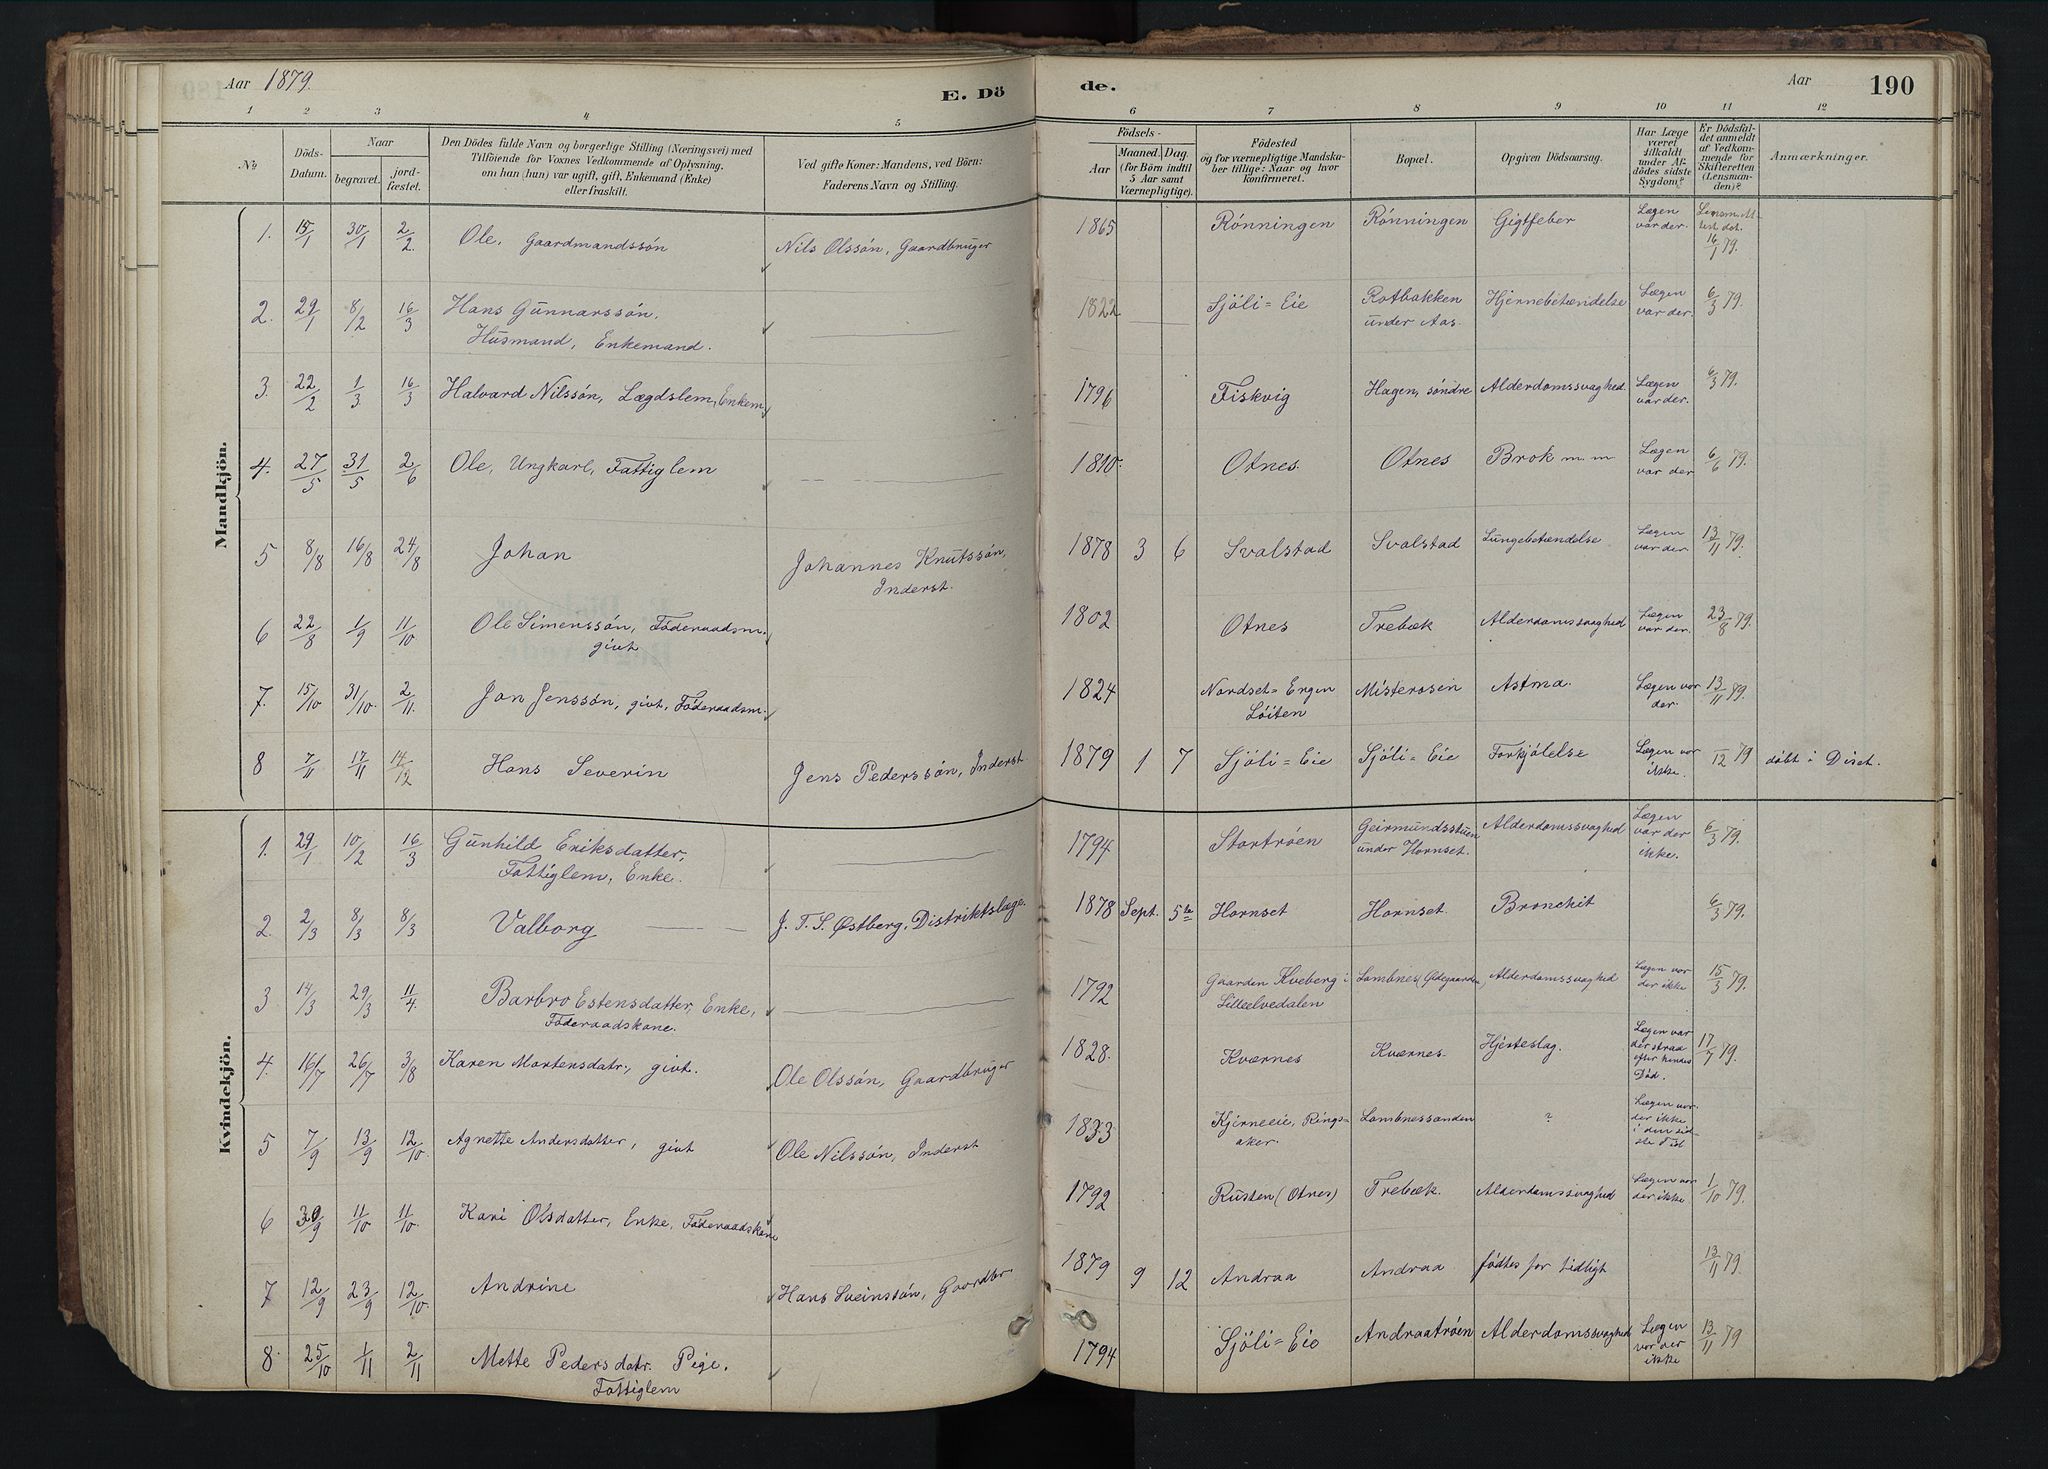 Aar 1879.
E. Dö
de.
Aar
190
1 2 3 4 5 6 7 8 9 10 11 12
No
Döds-Datum.
Naar
begravet.
jord-fæstet.
Den Dödes fulde Navn og borgerlige Stilling (Næringsvei) med
Tilföiende for Voxnes Vedkommende af Oplysning,
om han (hun) var ugift, gift, Enkemand (Enke)
eller fraskilt.
Ved gifte Koner: Mandens, ved Börn:
Faderens Navn og Stilling.
Födsels-
Aar
Maaned. Dag.
(for Börn indtil
5 Aar samt
Værnepligtige).
Födested
og for værnepligtige Mandska-
ber tillige: Naar og hvor
konfirmeret.
Bopæl.
Opgiven Dödsaarsag.
Har Læge
været
tilkaldt
under Af-
dödes sidste
Sygdom?
Er Dödsfal-
det anmeldt
af Vedkom-
mende for
Skifteretten
(Lensman-
den)?
Anmærkninger.
Mandkjön.
1. 15/1 30/1 2/2. Ole, Gaardmandssøn Nils Olssøn, Gaardbruger 1865 Rønningen Rønningen Gigtfeber Lægen var der. 16/1 79.
2. 29/1 8/2 16/3 Hans Gunnarssøn, Husmand, Enkemand. 1822 Sjøli=Eie Rotbakken under Aas. Hjernebetændelse Lægen var der. 6/3 79.
3. 22/2 1/3 16/3 Halvard Nilssøn, Lægdslem, Enkem. 1796 Fiskvig Hagen, søndre Alderdomssvaghed. Lægen var der. 6/3 79.
4. 27/5 31/5 2/6 Ole, Ungkarl, Fattiglem 1810. Otnes. Otnes Brok m. m Lægen var der 6/6 79.
5 8/8 16/8 24/8 Johan Johannes Knutssøn, Inderst. 1878 3 6 Svalstad Svalstad Lungebetændelse Lægen var der. 13/11 79.
6 22/8 1/9 11/10 Ole Simenssøn, Føderaadsm. givt 1802 Otnes Trebæk Alderdomssvaghed Lægen var der. 23/8 79.
7. 15/10 31/10. 2/11. Jon Jenssøn, givt, Føderaadsm. 1824 Nordset=Engen Løiten Misterosen Astma. Lægen var der. 13/11 79.
8 7/11 17/11 14/12 Hans Severin Jens Pederssøn, Inderst 1879 1 7 Sjøli=Eie Sjøli=Eie Forkjølelse Lægen var ikke. /12 79 døbt i Diset.
Kvindekjön.
1. 29/1 10/2 16/3 Gunhild Eriksdatter, Fattiglem, Enke. 1794 Stortrøen Geirmundsstuen under Hornset. Alderdomssvaghed Lægen var der ikke. 6/3 79.
2. 2/3 8/3 8/3 Valborg J. T. S. Østberg, Distriktslæge. 1878 Sept. 5te Hornset Hornset. Bronchit 6/3 79.
3 14/3 29/3 11/4. Barbro Estensdatter, Enke, Føderaadskone. 1792 Gaarden Kveberg i Lilleelvedalen Lombnes (Ødegaarden) Alderdomssvaghed Lægen var der ikke 15/3 79.
4. 16/7 26/7 3/8 Karen Mortensdatr., givt. Ole Olssøn, Gaardbruger 1828. Kværnes Kværnes Hjerteslag. Lægen var der straa efter hendes Død. 17/7 79.
5 7/9 13/9 12/10. Agnette Andersdatter, givt Ole Nilssøn, Inderst 1833 Kjerneeie, Rings-aker. Lombnessanden ? Lægen var der ikke i den sid-ste Tid
6 30/9 11/10 11/10. Kari Olsdatter, Enke, Føderaadskone 1792 Rusten (Otnes) Trebæk. Alderdomssvaghed Lægen var der ikke 1/10 79.
7 12/9 23/9 12/10. Andrine Hans Sveinssøn, Gaardbr. 1879 9 12 Andraa Andraa fødtes for tidligt 13/11 79.
8. 25/10 1/11 2/11 Mette Pedersdatr. Pige. Fattiglem 1794 Sjøli=Eie Andraatrøen Alderdomssvaghed Lægen var der ikke 13/11 79